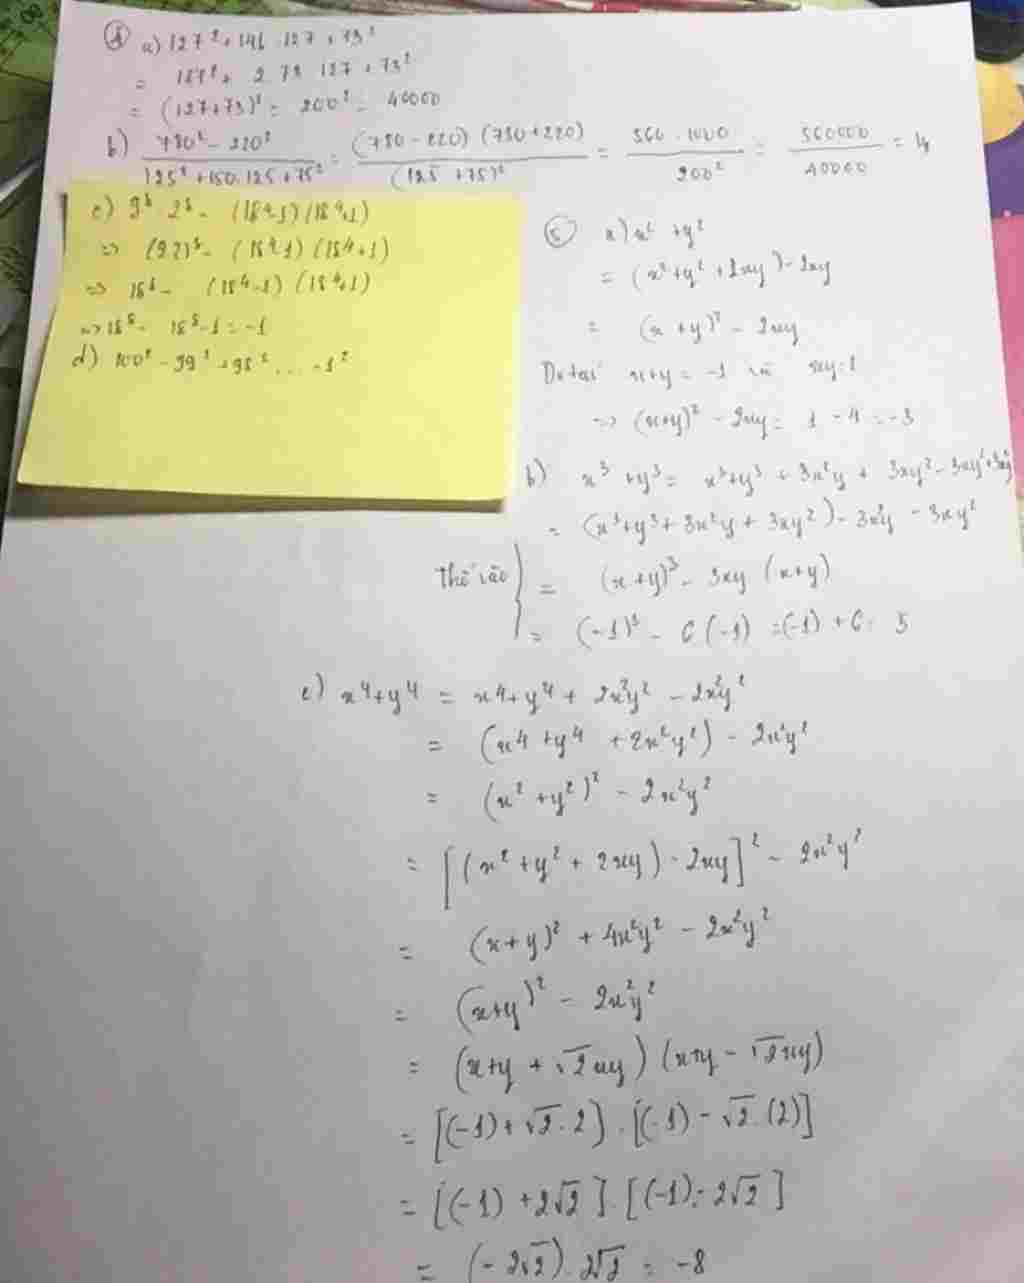 ④ a) 127² + 146 . 127 + 73²
= 127² + 2 . 73 . 127 + 73²
= (127+73)² = 200² = 40000
b) (780² - 220²)/(125² + 150.125 + 75²) = ((780 - 220) (780 + 220))/((125 + 75)²) = (560 . 1000)/(200²) = 560000/40000 = 14
c) 9⁸ . 2⁸ - (18⁴-1) (18⁴+1)
=> (9.2)⁸ - (18⁴-1) (18⁴+1)
=> 18⁸ - (18⁴-1) (18⁴+1)
=> 18⁸ - 18⁸ - 1 = -1
d) 100² - 99² + 98² ... - 1²
⑤ a) x² + y²
= (x² + y² + 2xy) - 2xy
= (x + y)² - 2xy
x+y = -1 và xy =
=> (x+y)² - 2xy = 1 - 4 = -3
b) x³ + y³ = x³ + y³ + 3x²y + 3xy² - 3xy² + 3x²y
= (x³ + y³ + 3x²y + 3xy²) - 3x²y - 3xy²
Thế vào } = (x + y)³ - 3xy (x+y)
= (-1)³ - 6 (-1) = (-1) + 6 = 5
c) x⁴ + y⁴ = x⁴ + y⁴ + 2x²y² - 2x²y²
= (x⁴ + y⁴ + 2x²y²) - 2x²y²
= (x² + y²)² - 2x²y²
= [(x² + y² + 2xy) - 2xy]² - 2x²y²
= (x + y)² + 4x²y² - 2x²y²
= (x+y)² - 2x²y²
= (x+y + √2xy) (x+y - √2xy)
= [(-1) + √2 . 2] . [(-1) - √2 . (2)]
= [(-1) + 2√2] . [(-1) - 2√2]
= (-2√2) . 2√2 = -8